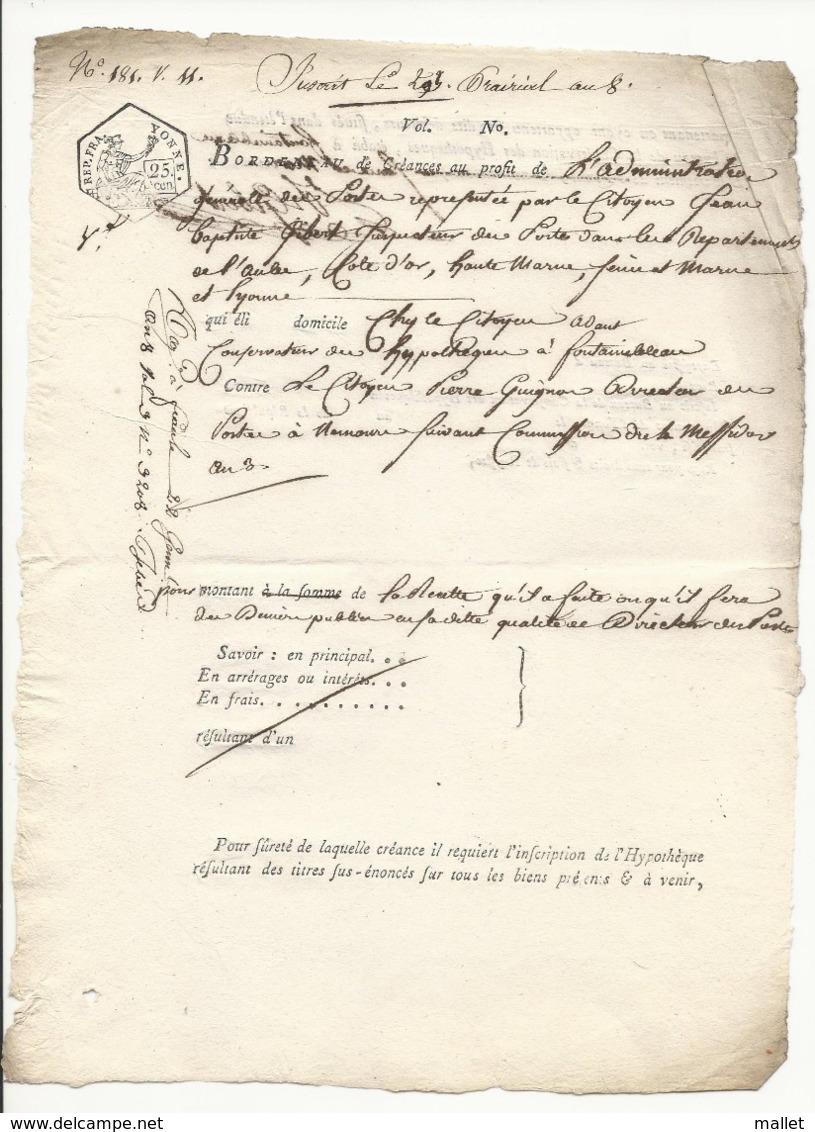 N.º 181. V. 11. Inscrit Le 29. Prairial an 8.
REP. FRA. YONNE. 25. cen.
Vol. Nº.
BORDEREAU de Créances au profit de L'administration
Generalle des Postes representée par le Citoyen Jean
Baptiste Gibert Inspecteur des Postes dans les Departements
de l'Aube, Cote d'or, haute Marne, Seine et Marne
et Lyonne
qui éli domicile Chez le Citoyen adant
Conservateur des hypotheques à fontainebleau
Contre Le Citoyen Pierre Guignon Directeur des
Postes à Nemours suivant Commission du Messidor
an 3.
pour montant à la somme de la Recette qu'il a faite ou qu'il fera
des Deniers publics en sa ditte qualité de Directeur des Postes
Savoir : en principal. . .
En arrérages ou intérêts. . .
En frais. . . . . . . . . .
résultant d'un
Pour sûreté de laquelle créance il requiert l'inscription de l'Hypothèque
résultant des titres sus-énoncés sur tous les biens présents & à venir,
an 8 Vol. 3 N.º 3208.
mallet